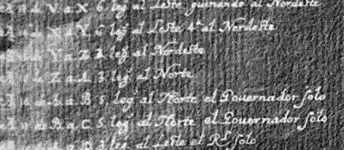 de V a X 6 leg. al Leste guinando al Nordeste
de X a Y 6 leg. al Leste 4.ª al Nordeste
de Y a Z 2 leg. al Nordeste
de Z a A 3 leg. al Norte
de A a B 5 leg. al Norte el Governador solo
de B a C 5 leg. al Norte el Governador solo
a D 3 leg. al Leste el R.l solo